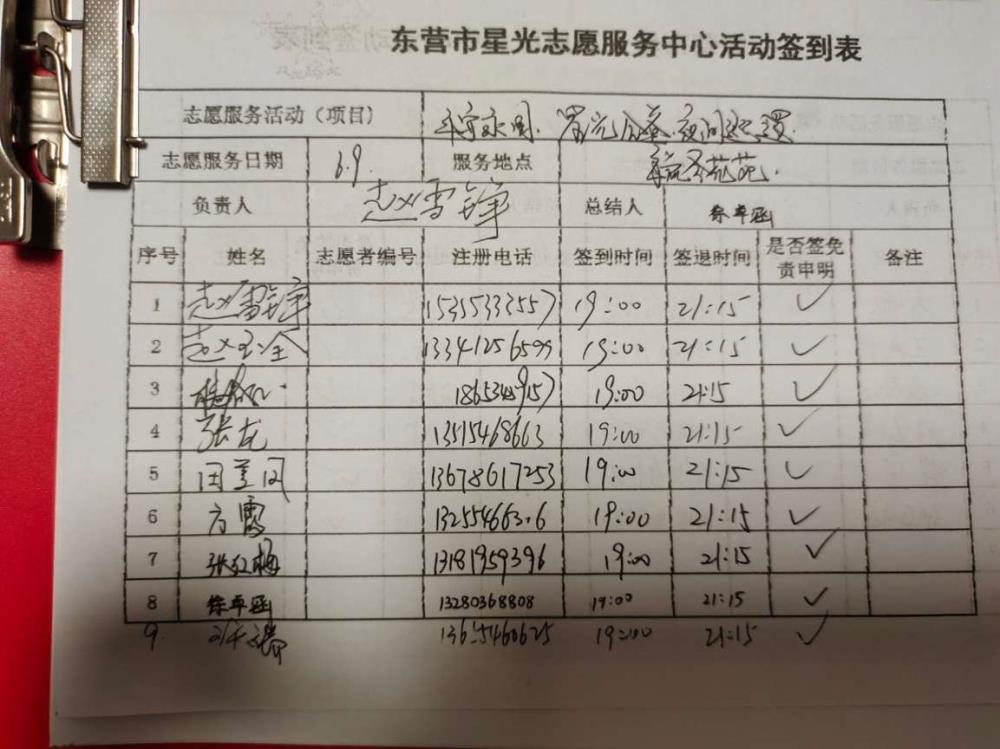 东营市星光志愿服务中心活动签到表
志愿服务活动（项目） 夜间
志愿服务日期 6.9. 服务地点
负责人 赵雪锋 总结人 徐卓函
序号 姓名 志愿者编号 注册电话 签到时间 签退时间 是否签免责申明 备注
1 赵雪锋 15355333557 19:00 21:15 ✓
2 13341256599 19:00 21:15 ✓
3 19:00 21:15 ✓
4 张龙 13515468663 19:00 21:15 ✓
5 田兰凤 13678617253 19:00 21:15 ✓
6 方霞 19:00 21:15 ✓
7 张红梅 13181959396 19:00 21:15 ✓
8 徐卓函 13280368808 19:00 21:15 ✓
9. 19:00 21:15 ✓